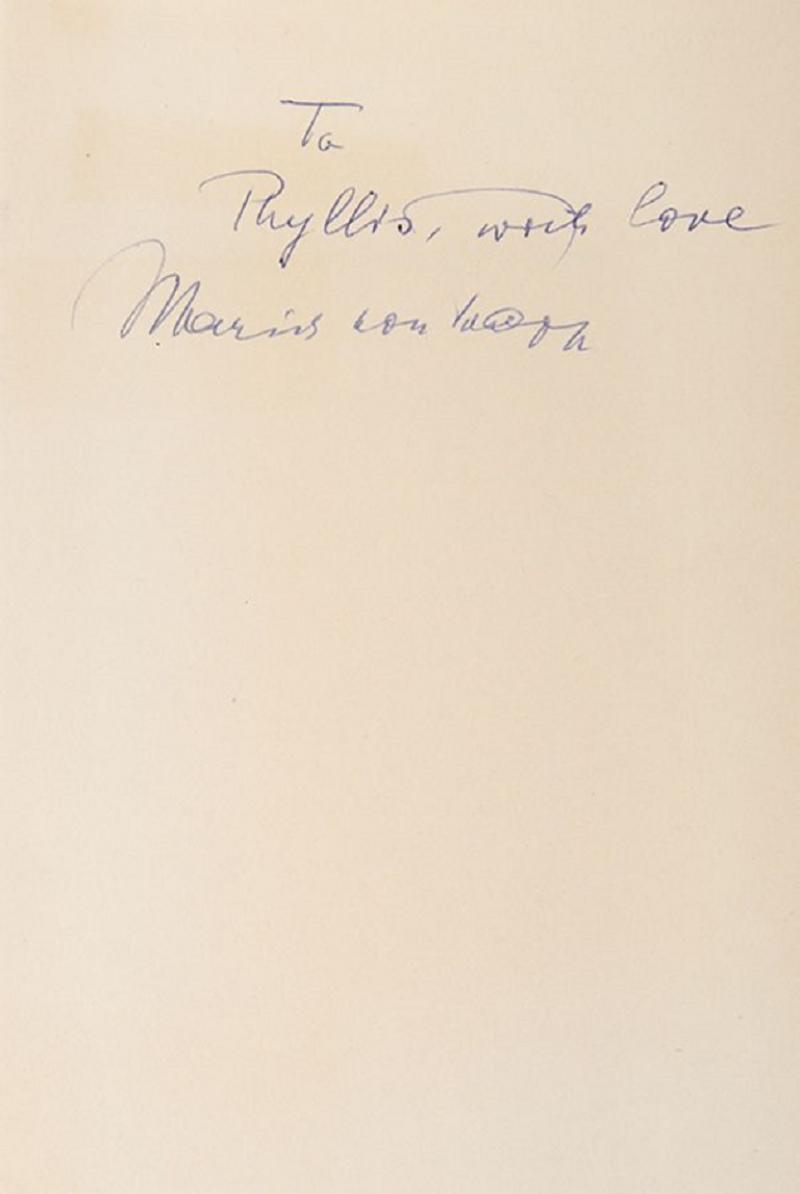 To
Phyllis, with love
Maria von Trapp